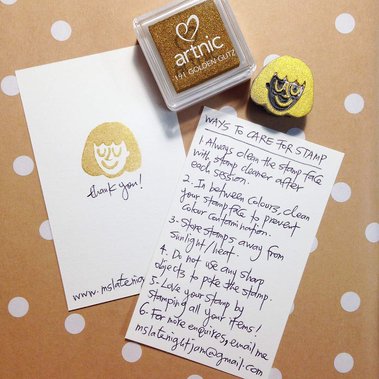 artnic
191 GOLDEN GLITZ
thank you!
WAYS TO CARE FOR STAMP
1. Always clean the stamp face
with stamp cleaner after
each session.
2. In between colours, clean
your stamp face to prevent
colour contamination.
3. Store stamps away from
sunlight/heat.
4. Do not use any sharp
objects to poke the stamp.
5. Love your stamp by
stamping all your items!
6. For more enquires, email me
mslatenightjam@gmail.com